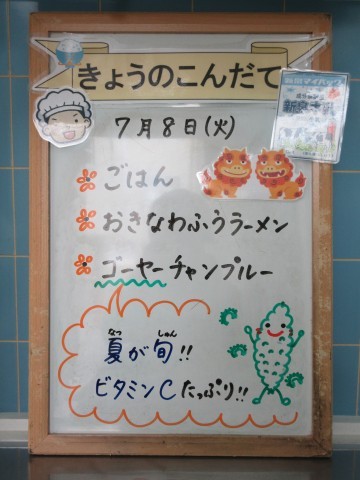 きょうのこんだて
7月8日(火)
ごはん
おきなわふうラーメン
ゴーヤーチャンプルー
夏が旬!!
なつ しゅん
ビタミンCたっぷり!!